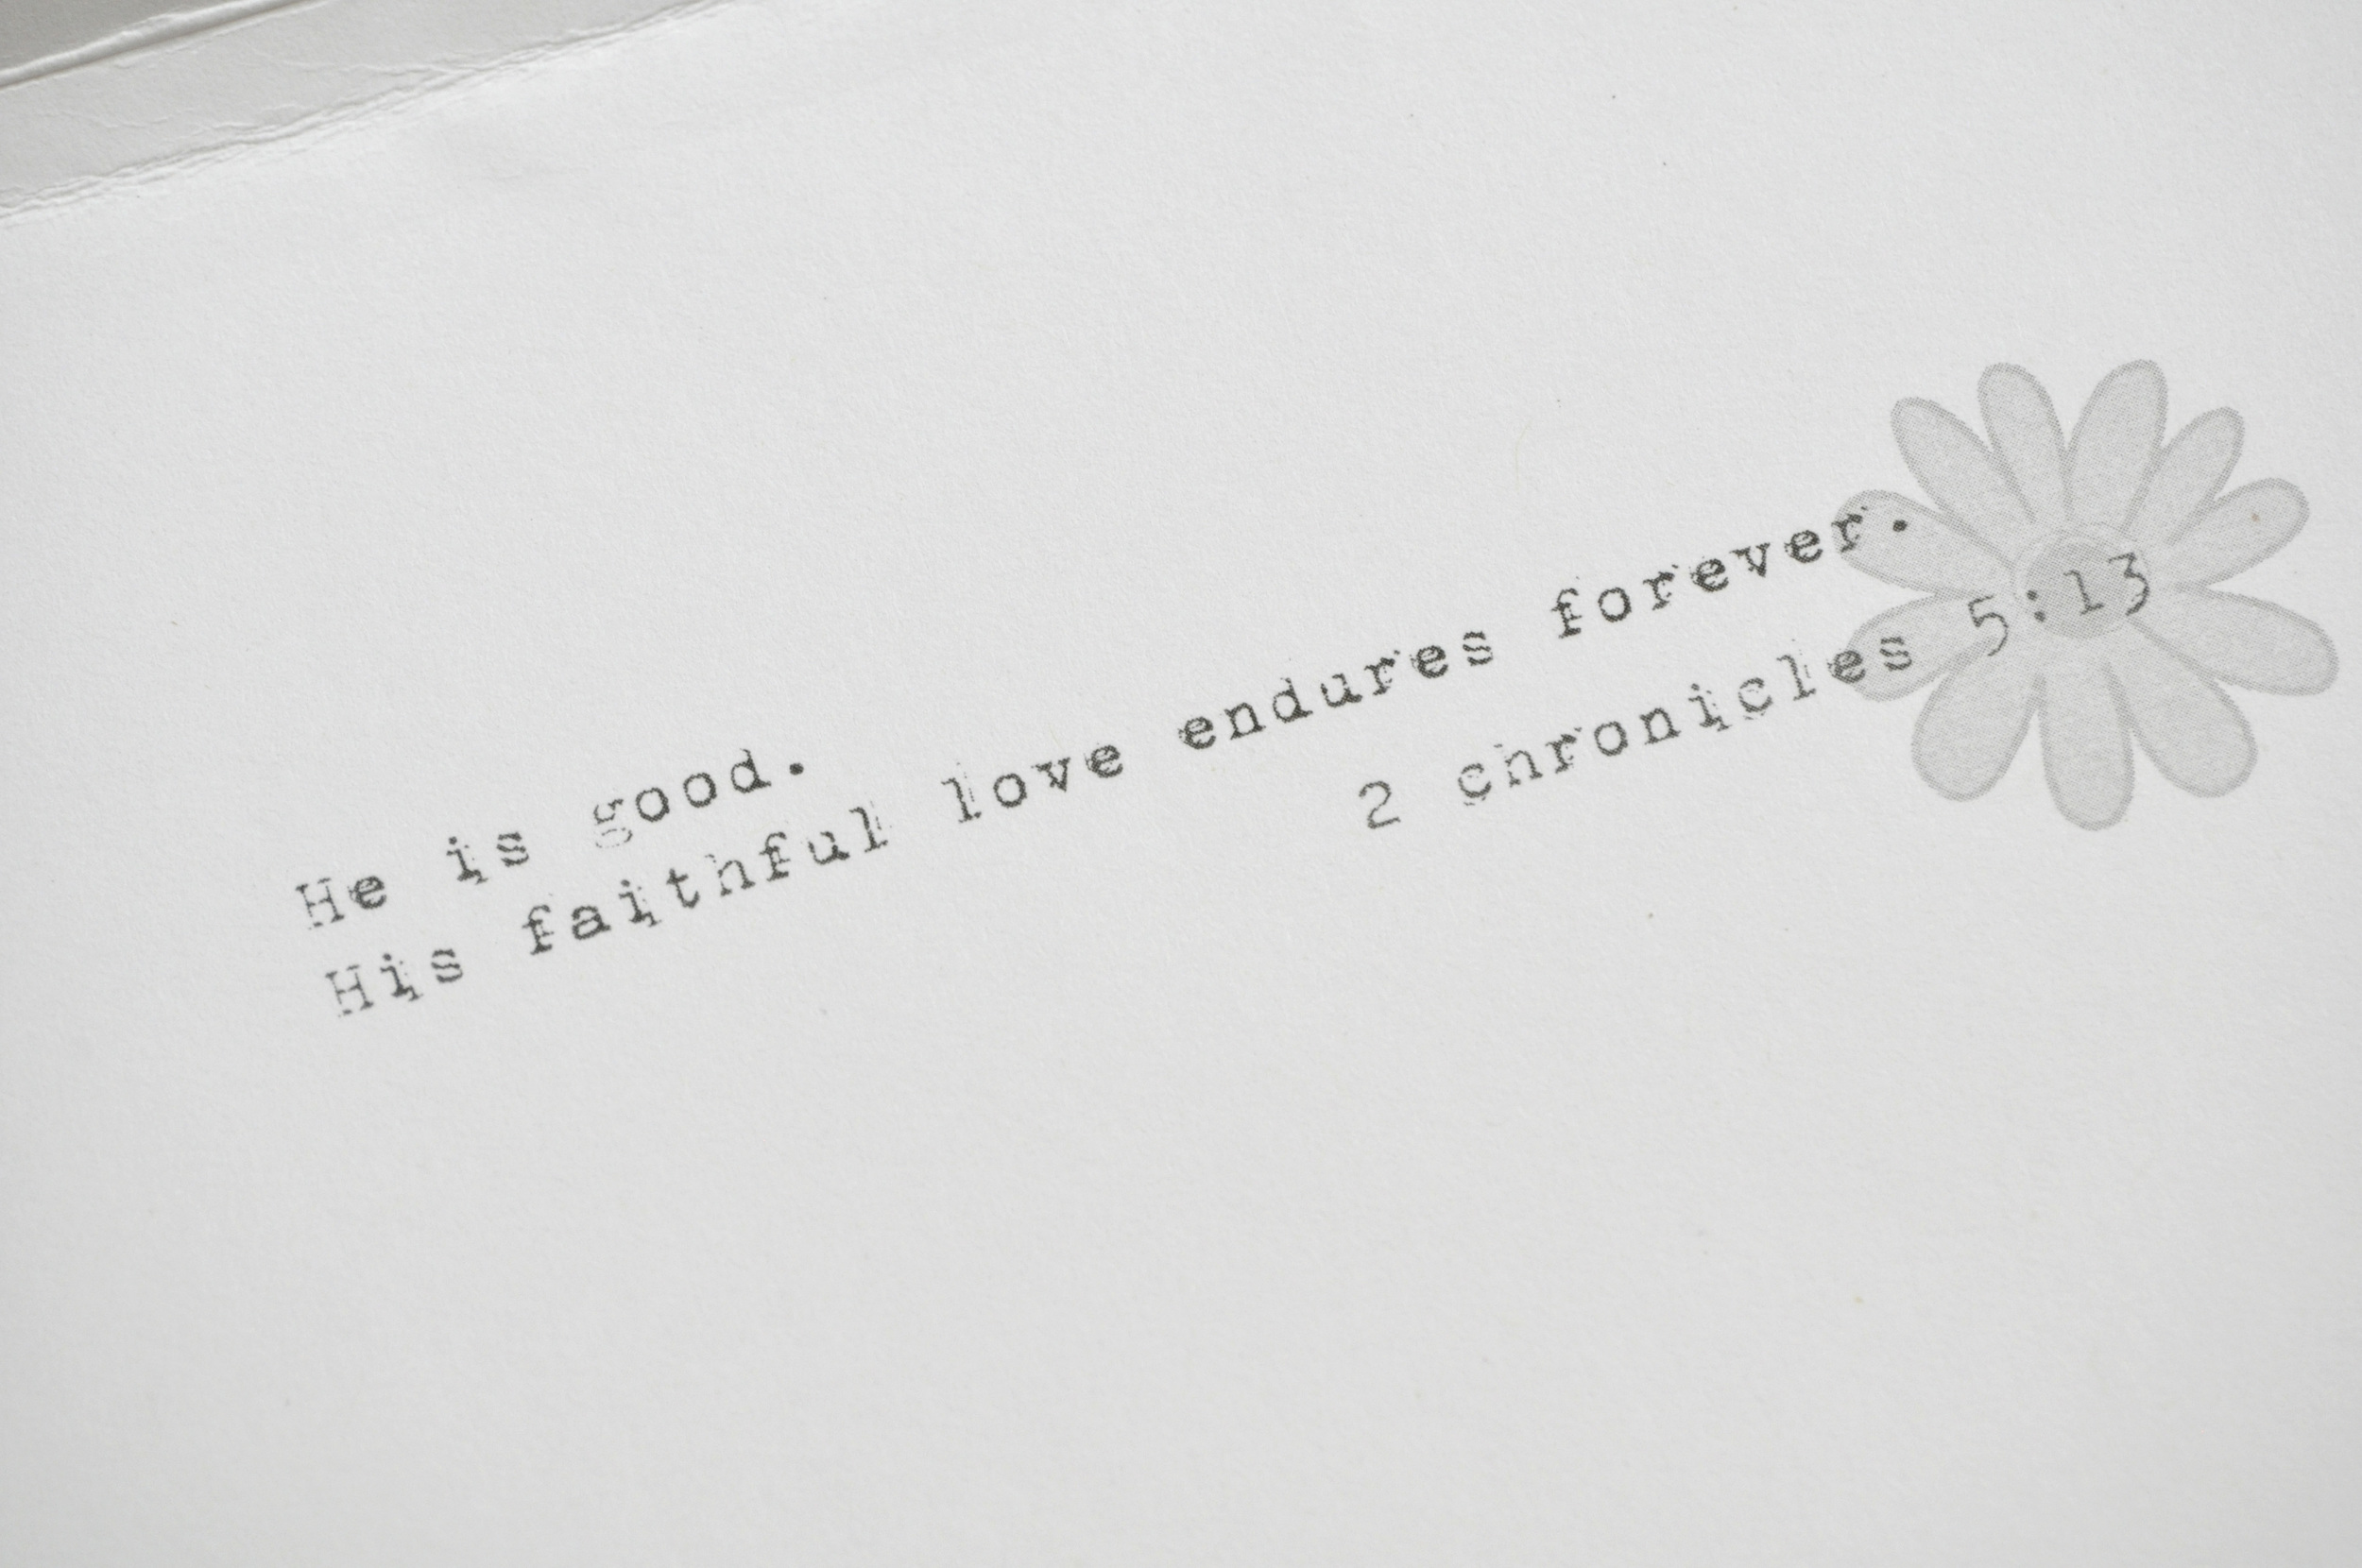 He is good.
His faithful love endures forever.
2 chronicles 5:13